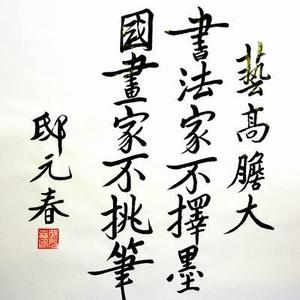 藝高膽大
書法家不擇墨
國畫家不挑筆
邸元春